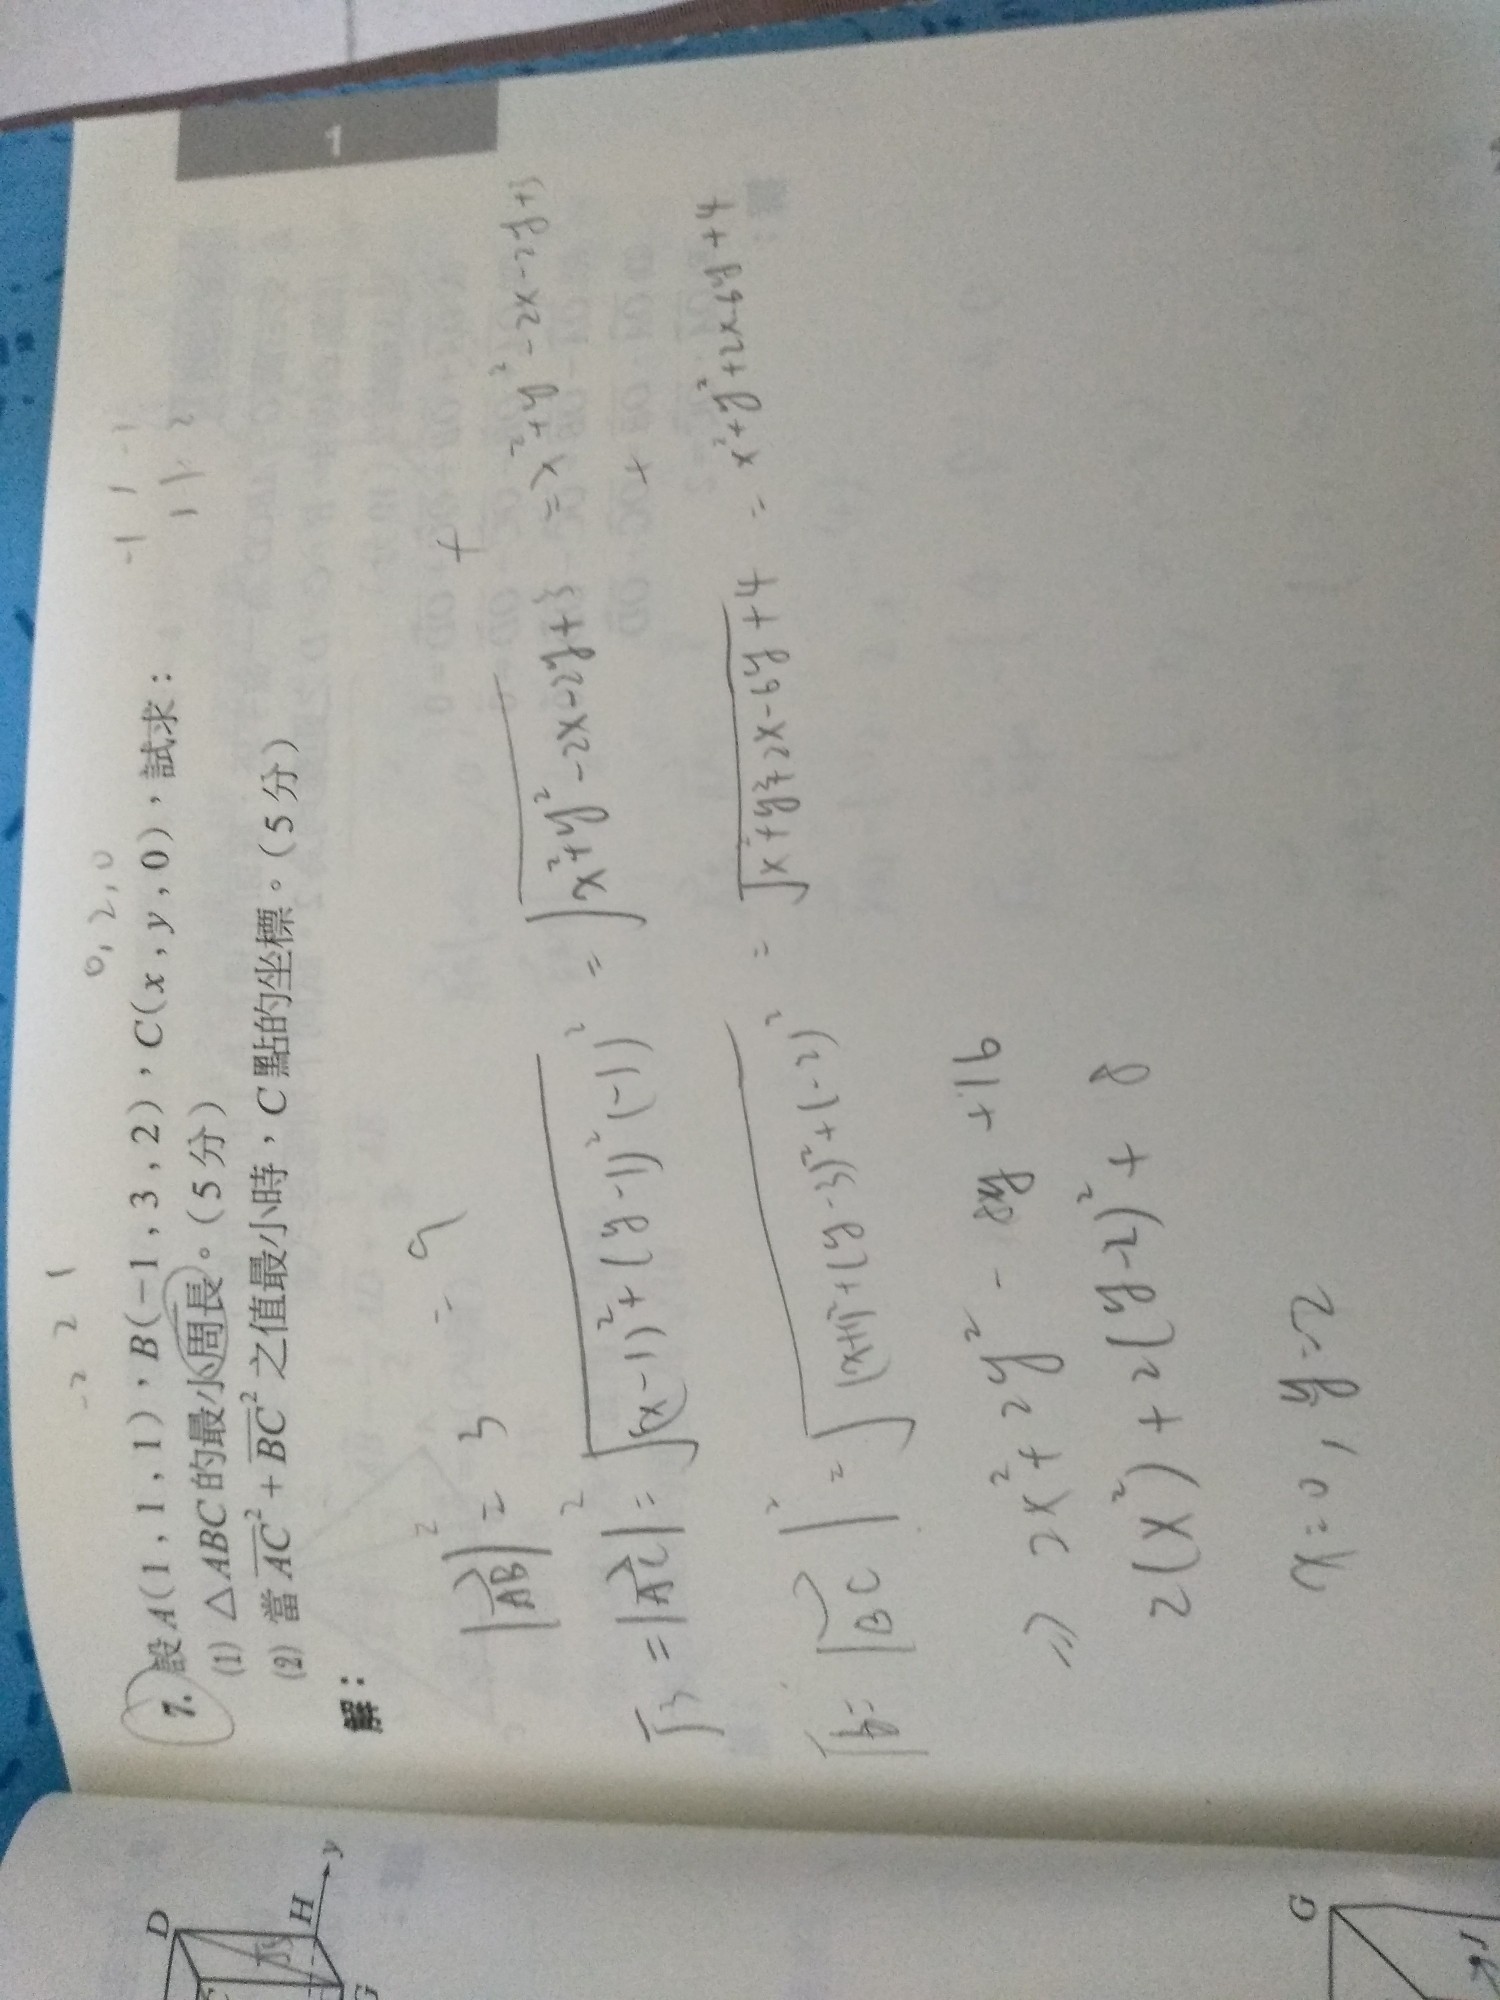 1
-2 2 1
0, 2, 0
7. 設A(1,1,1)、B(-1,3,2),C(x,y,0),試求:
(1) △ABC的最小周長。(5分)
(2) 當 AC² + BC² 之值最小時,C點的坐標。(5分)
解:
|AB|² = 3 = 9
√3 = |AC|² = √(x-1)²+(y-1)²(-1)² = √x²+y²-2x-2y+3 = x²+y²-2x-2y+3
+
|BC|² = √(x+1)²+(y-3)²+(-2)² = √x²+y²+2x-6y+4 = x²+y²+2x-6y+4
⇒ 2x²+2y² - 8y +16
2(x²) + 2(y-2)² + 8
x=0, y=2
D
H
y
G
G